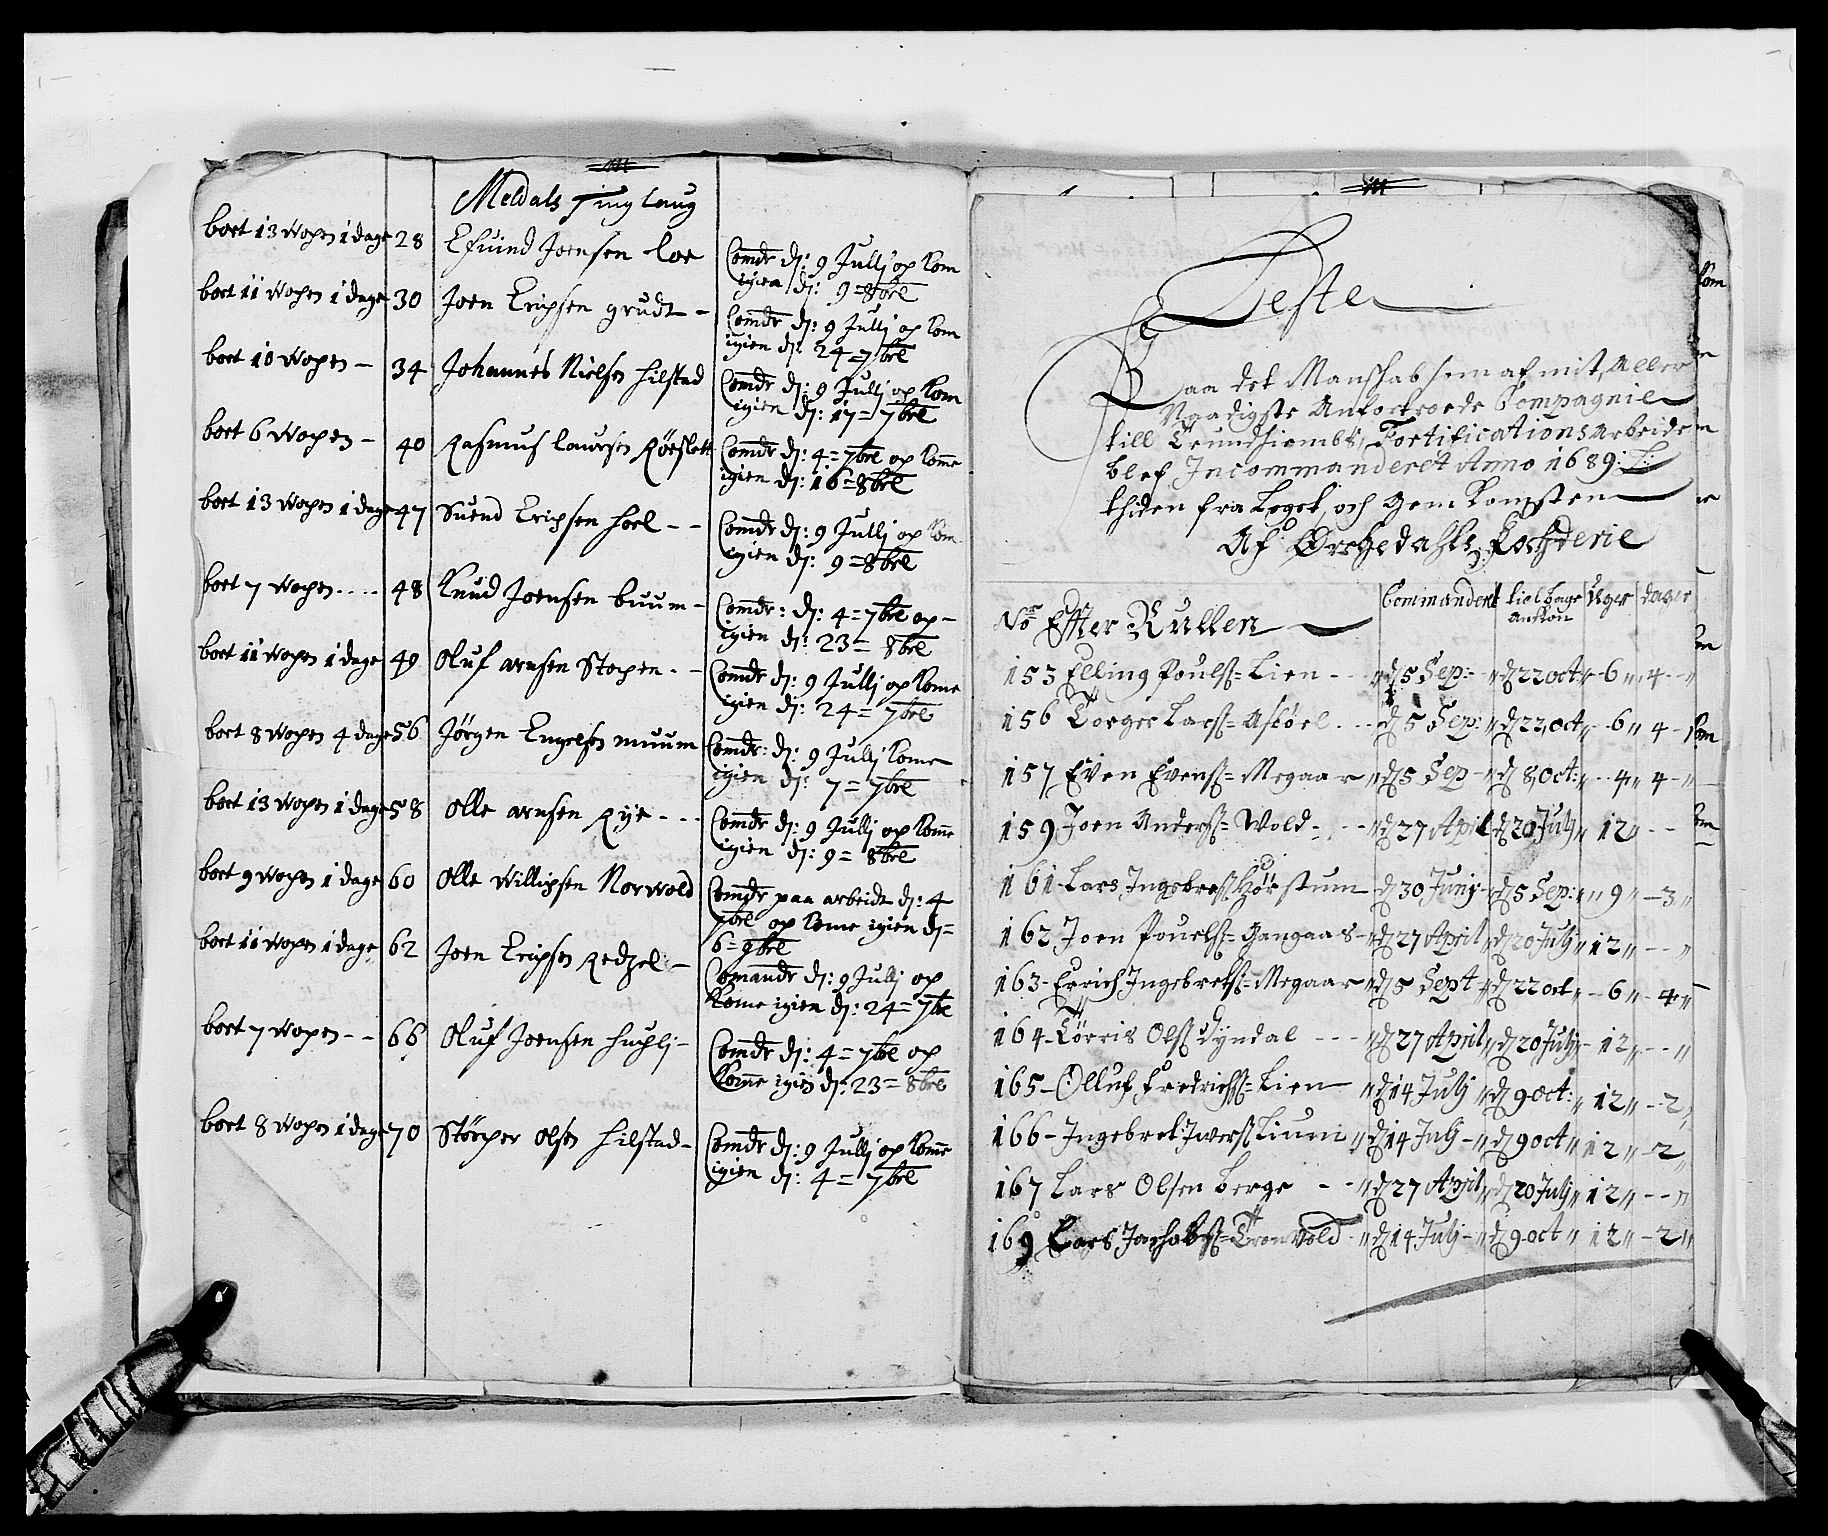 Meldals Ting laug
boet 13 Wogen 1 dage 28 Efuind Joensen loe Comdr dj: 9 Jullj op kom
igien dj: 9=8brl
boet 11 Wogen 1 dage 30 Joen Eripsen grudt – Comdr dj: 9 Jullj op kom
igien dj: 24=7brl
boet 10 Wogen – 34 Johannes Nielsen hilstad Comdr dj: 9 Jullj op kom
igien dj: 17=7brl
boet 6 Wogen – 40 Rasmus laursen Röeslett Comdr dj: 4=7brl op komme
igien dj: 16=8brl
boet 13 Wogen 1 dage 47 Suend Eripsen hoel – – Comdr dj: 9 Jullj op kom
igien dj: 9=8brl
boet 7 Wogen .... 48 Knud Joensen buum – Comdr: dj: 4=7brl op –
igien dj: 23= 8brl
boet 11 Wogen 1 dage 49 Oluf arnsen Stopen – – Comdr dj: 9 Jullj op kome
igien dj: 24= 7brl
boet 8 Wogen 4 dage 56 Jörgen Engelsen muum Comdr: dj: 9 Jullj kome
igien dj: 7=7brl
boet 13 Wogen 1 dage 58 Olle arnsen Rye – – – Comdr dj: 9 Jullj op komme
igien dj: 9= 8brl
boet 9 Wogen 1 dage 60 Olle Willipsen Norwold Comdr paa arbeidt dj: 4
7brl op kome igien dj=
6=9brl
boet 11 Wogen 1 dage 62 Joen Eripsen Redzel – Comandr dj: 9 Jullj op
kome igien dj: 24=7br
boet 7 Wogen – – 66 Oluf Joensen huplj – Comdr dj: 4=7brl op
komme igien dj: 23= 8brl
boet 8 Wogen 1 dage 70 Störper olsen hilstad – Comdr dj: 9 Jullj op komme
igien dj: 4= 7brl
Paa det Manskab som af mit, Aller
Naadigste Anfortroede Compagnie
till Trundhiembs, Fortifications Arbeide
blef Incommanderet Anno 1689
thiden fra Leget, och gem komsten
Af Orchedahls Fogderie
No Efter Rullen Commandert tielbage ankom Uger dager
153 Elling Pouls= Lien – – d 5 Sep: d 22 oct 6 4
156 Torger Lars= Asböel – – d 5 Sep: d 22 oct 6 4
157 Even Evens= Megaar d 5 Sep d 8 oct: 4 4
159 Joen Anders= Wold – – d 27 April d 20 July 12 – –
161 Lars Ingebres Hörstum d 30 Junj d 5 Sep: 9 – 3
162 Joen Pouels= Gangaas – d 27 April d 20 July 12 – –
163 – Errich Ingebrets= Megaar d 5 Sept d 22 oct – 6 – 4
164 – Törris Ols dyndal – – – d 27 April d 20 July – 12 – –
165 – Olluf Fredrichs= Lien d 14 Julj d 9 oct: 12 – 2
166 – Ingebret Jwers Lium d 14 Julj – d 9 oct 12 – 2
167 Lars Olsen berge – – d 27 April d 20 Julj 12 – –
169 Lars Jachobs= Tronvold d 14 Julj – d 9 oct 12 – 2